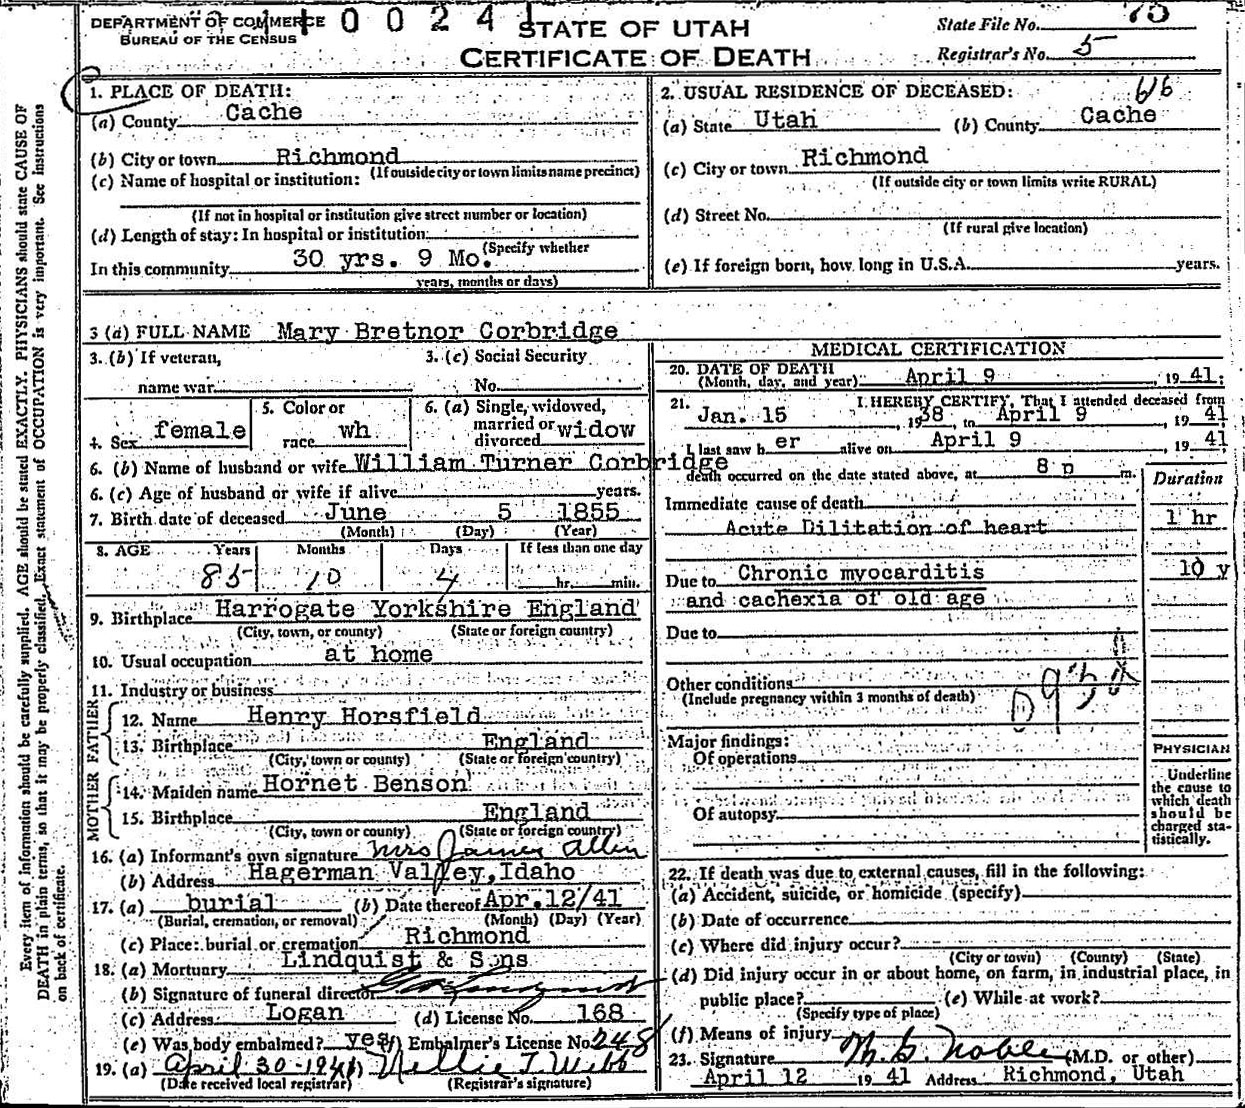 DEPARTMENT OF COMMERCE
BUREAU OF THE CENSUS
0 0 2 4 1
STATE OF UTAH
CERTIFICATE OF DEATH
State File No. 75
Registrar's No. 5
1. PLACE OF DEATH:
(a) County Cache
(b) City or town Richmond
(If outside city or town limits name precinct)
(c) Name of hospital or institution:
(If not in hospital or institution give street number or location)
(d) Length of stay: In hospital or institution:
(Specify whether
In this community 30 yrs. 9 Mo.
years, months or days)
2. USUAL RESIDENCE OF DECEASED:
(a) State Utah (b) County Cache
(c) City or town Richmond
(If outside city or town limits write RURAL)
(d) Street No.
(If rural give location)
(e) If foreign born, how long in U.S.A. years.
3 (a) FULL NAME Mary Bretnor Corbridge
3. (b) If veteran,
name war
3. (c) Social Security
No.
4. Sex female
5. Color or
race wh
6. (a) Single, widowed,
married or
divorced widow
6. (b) Name of husband or wife William Turner Corbridge
6. (c) Age of husband or wife if alive years.
7. Birth date of deceased June 5 1855
(Month) (Day) (Year)
8. AGE Years Months Days If less than one day
85 10 4 hr. min.
9. Birthplace Harrogate Yorkshire England
(City, town, or county) (State or foreign country)
10. Usual occupation at home
11. Industry or business
FATHER
12. Name Henry Horsfield
13. Birthplace England
(City, town or county) (State or foreign country)
MOTHER
14. Maiden name Hornet Benson
15. Birthplace England
(City, town or county) (State or foreign country)
16. (a) Informant's own signature Mrs James Allen
(b) Address Hagerman Valley, Idaho
17. (a) burial (b) Date thereof Apr. 12/41
(Burial, cremation, or removal) (Month) (Day) (Year)
(c) Place: burial or cremation Richmond
18. (a) Mortuary Lindquist & Sons
(b) Signature of funeral director
(c) Address Logan (d) License No. 168
(e) Was body embalmed? yes (f) Embalmer's License No. 248
19. (a) April 30-1941 (b) Nellie T. Webb
(Date received local registrar) (Registrar's signature)
MEDICAL CERTIFICATION
20. DATE OF DEATH
(Month, day, and year) April 9, 1941.
21. I HEREBY CERTIFY, That I attended deceased from
Jan. 15, 1938, to April 9, 1941
I last saw h er alive on April 9, 1941
death occurred on the date stated above, at 8 p m.
Duration
Immediate cause of death
Acute Dilitation of heart 1 hr
Due to Chronic myocarditis 10 y
and cachexia of old age
Due to
Other conditions
(Include pregnancy within 3 months of death)
Major findings:
Of operations
Of autopsy
PHYSICIAN
Underline
the cause to
which death
should be
charged sta-
tistically.
22. If death was due to external causes, fill in the following:
(a) Accident, suicide, or homicide (specify)
(b) Date of occurrence
(c) Where did injury occur?
(City or town) (County) (State)
(d) Did injury occur in or about home, on farm, in industrial place, in
public place? (e) While at work?
(Specify type of place)
(f) Means of injury
23. Signature Noble (M.D. or other)
April 12 1941 Address Richmond, Utah
Every item of information should be carefully supplied. AGE should be stated EXACTLY. PHYSICIANS should state CAUSE OF
DEATH in plain terms, so that it may be properly classified. Exact statement of OCCUPATION is very important. See instructions
on back of certificate.